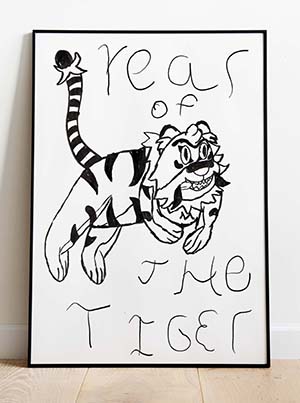 Year
of
THe
TIGEr